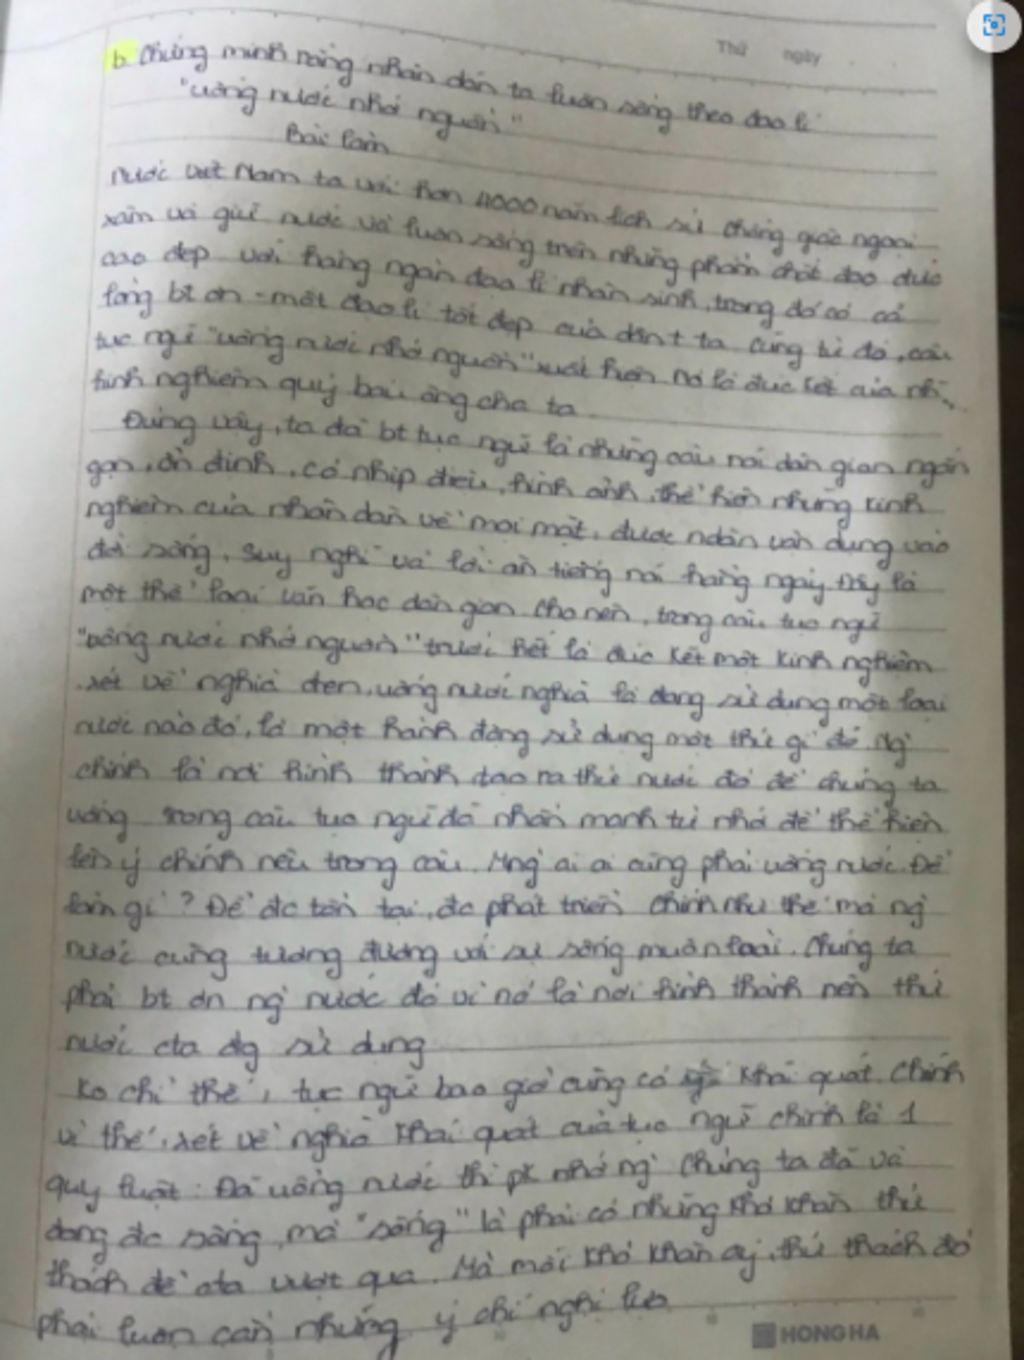 Thứ ngày
b. Chứng minh rằng nhân dân ta luôn sống theo đạo lí
"uống nước nhớ nguồn"
Bài làm
Nước Việt Nam ta với hơn 4000 năm lịch sử chống giặc ngoại
xâm và giữ nước và luôn sống trên những phẩm chất đạo đức
cao đẹp với hàng ngàn đạo lí nhân sinh, trong đó có cả
lòng bt ơn - một đạo lí tốt đẹp của dân t ta cũng từ đó, câu
tục ngữ "uống nước nhớ nguồn" xuất hiện nó là đúc kết của
kinh nghiệm quý báu ông cha ta
Đúng vậy, ta đã bt tục ngữ là những câu nói dân gian ngắn
gọn, ổn định, có nhịp điệu, hình ảnh, thể hiện những kinh
nghiệm của nhân dân về mọi mặt, được ndân vận dụng vào
đời sống, suy nghĩ và lời ăn tiếng nói hàng ngày đây là
một thể loại văn học dân gian cho nên, trong câu tục ngữ
"uống nước nhớ nguồn" trước hết là đúc kết một kinh nghiệm
.xét về nghĩa đen, uống nước nghĩa là đang sử dụng một loại
nước nào đó, là một hành động sử dụng một thứ gì đó. Ng`
chính là nơi hình thành, tạo ra thứ nước đó để chúng ta
uống trong câu tục ngữ đã nhấn mạnh từ nhớ để thể hiện
lên ý chính nêu trong câu. Mng ai ai cũng phải uống nước. Để
làm gì? Để đc tồn tại, đc phát triển chính như thế mà ng`
nước cũng tương đương với sự sống muôn loài. Chúng ta
phải bt ơn ng` nước đó vì nó là nơi hình thành nên thứ
nước cta đg sử dụng
Ko chỉ thế, tục ngữ bao giờ cũng có khái quát. Chính
vì thế, xét về nghĩa khái quát của tục ngữ chính là 1
quy luật: Đã uống nước thì pk nhớ ng` chúng ta đã và
đang đc sống, mà "sống" là phải có những khó khăn thử
thách để cta vượt qua. Mà mỗi khó khăn ấy, thử thách đó
phải luôn cần những ý chí nghị lực
HONG HA